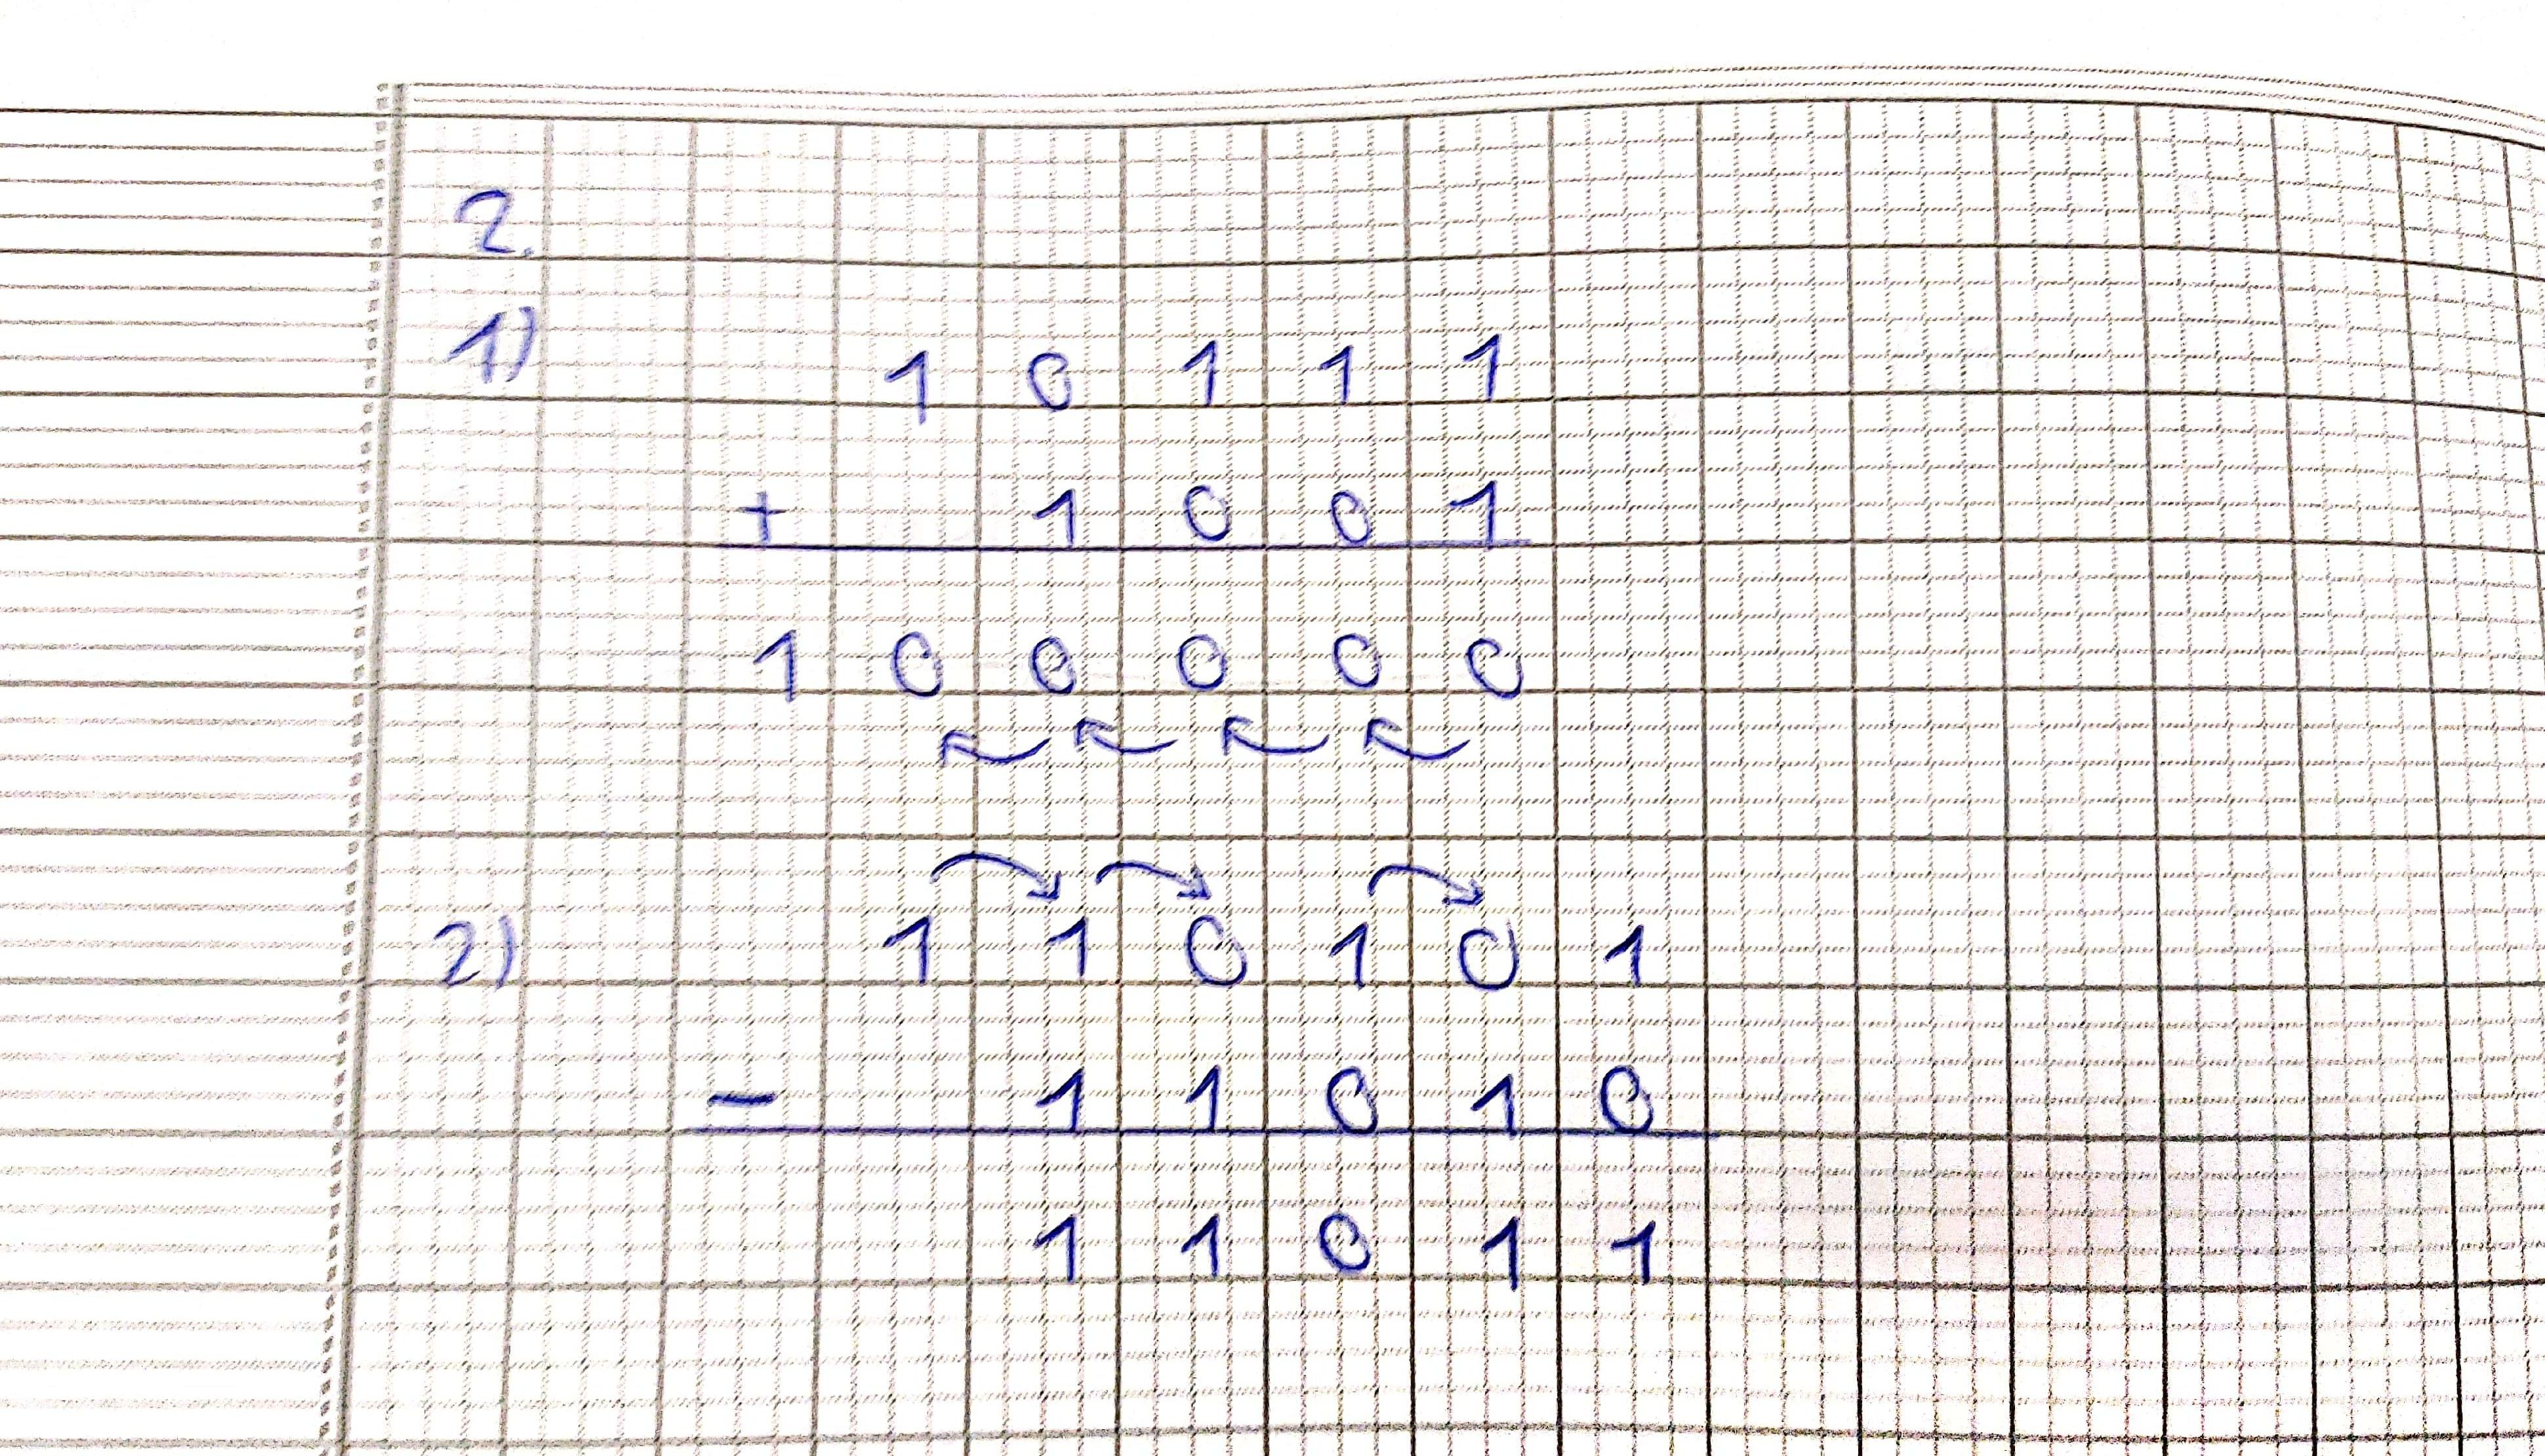 2.
1) 1 0 1 1 1
+ 1 0 0 1
1 0 0 0 0 0
2) 1 1 0 1 0 1
- 1 1 0 1 0
1 1 0 1 1